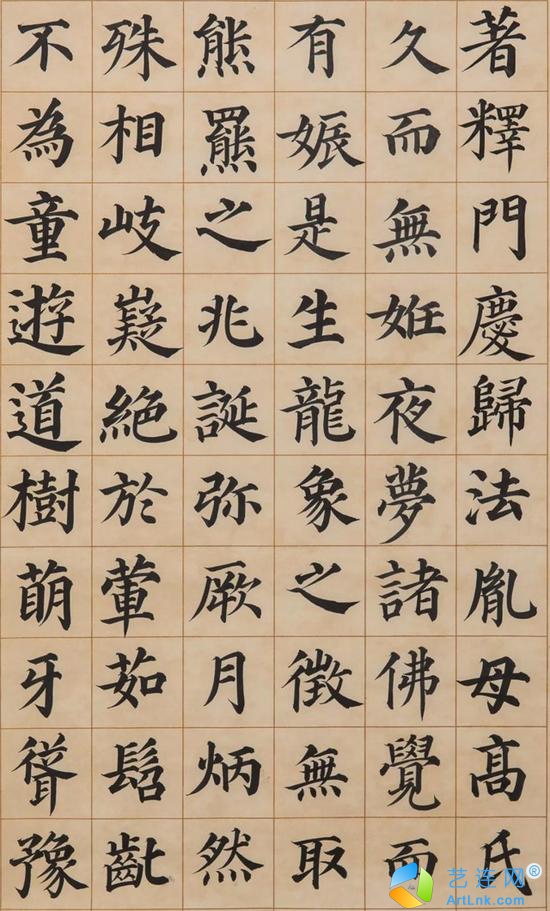 著釋門慶歸法胤母髙氏
久而無姙夜夢諸佛覺而
有娠是生龍象之徵無取
熊羆之兆誕弥厥月炳然
殊相岐嶷絕於葷茹髫齓
不為童遊道樹萌牙聳豫
艺连网®
ArtLnk.Cn